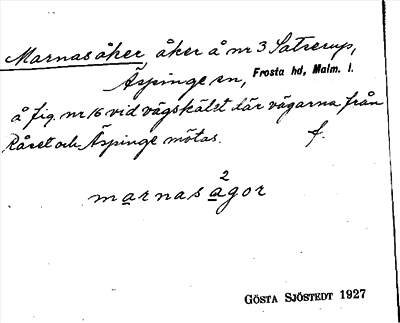 Marnasåker, åker å nr 3 Satserup,
Äspinge sn, Frosta hd, Malm. l.
å fig. nr 16 vid vägskälet där vägarna från
Råset och Äspinge mötas. f.
2
marnasagor
GÖSTA SJÖSTEDT 1927